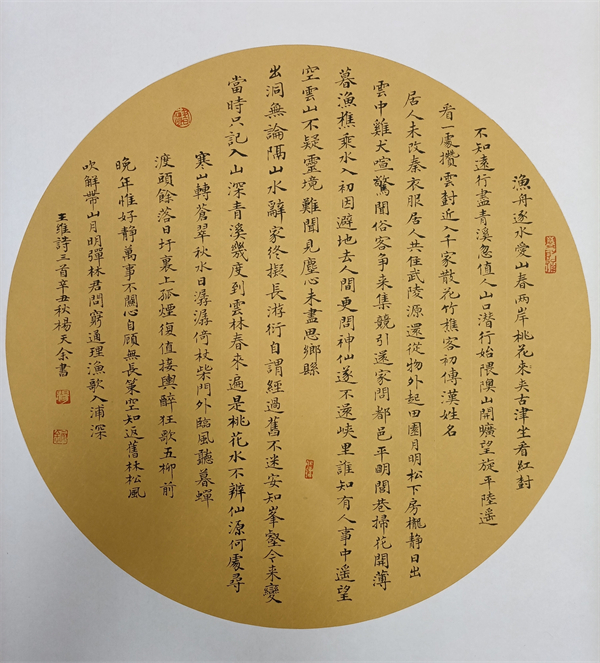 漁舟逐水愛山春兩岸桃花夾去古津坐看紅樹
不知遠行盡青溪忽值人山口潛行始隈隩山開曠望旋平陸遥
看一處攢雲樹近入千家散花竹樵客初傳漢姓名
居人未改秦衣服居人共住武陵源還從物外起田園月明松下房櫳静日出
雲中雞犬喧驚聞俗客爭来集競引還家問都邑平明閭巷掃花開薄
暮漁樵乘水入初因避地去人間更問神仙遂不還峽里誰知有人事中遥望
空雲山不疑靈境難聞見塵心未盡思鄉縣
出洞無論隔山水辭家終擬長游衍自謂經過舊不迷安知峯壑今来變
當時只記入山深青溪幾度到雲林春来遍是桃花水不辨仙源何處尋
寒山轉蒼翠秋水日潺潺倚杖柴門外臨風聽暮蟬
渡頭餘落日圩裏上孤煙復值接輿醉狂歌五柳前
晚年惟好静萬事不關心自顧無長策空知返舊林松風
吹解帶山月明彈林君問窮通理漁歌入浦深
王維詩三首辛丑秋楊天余書